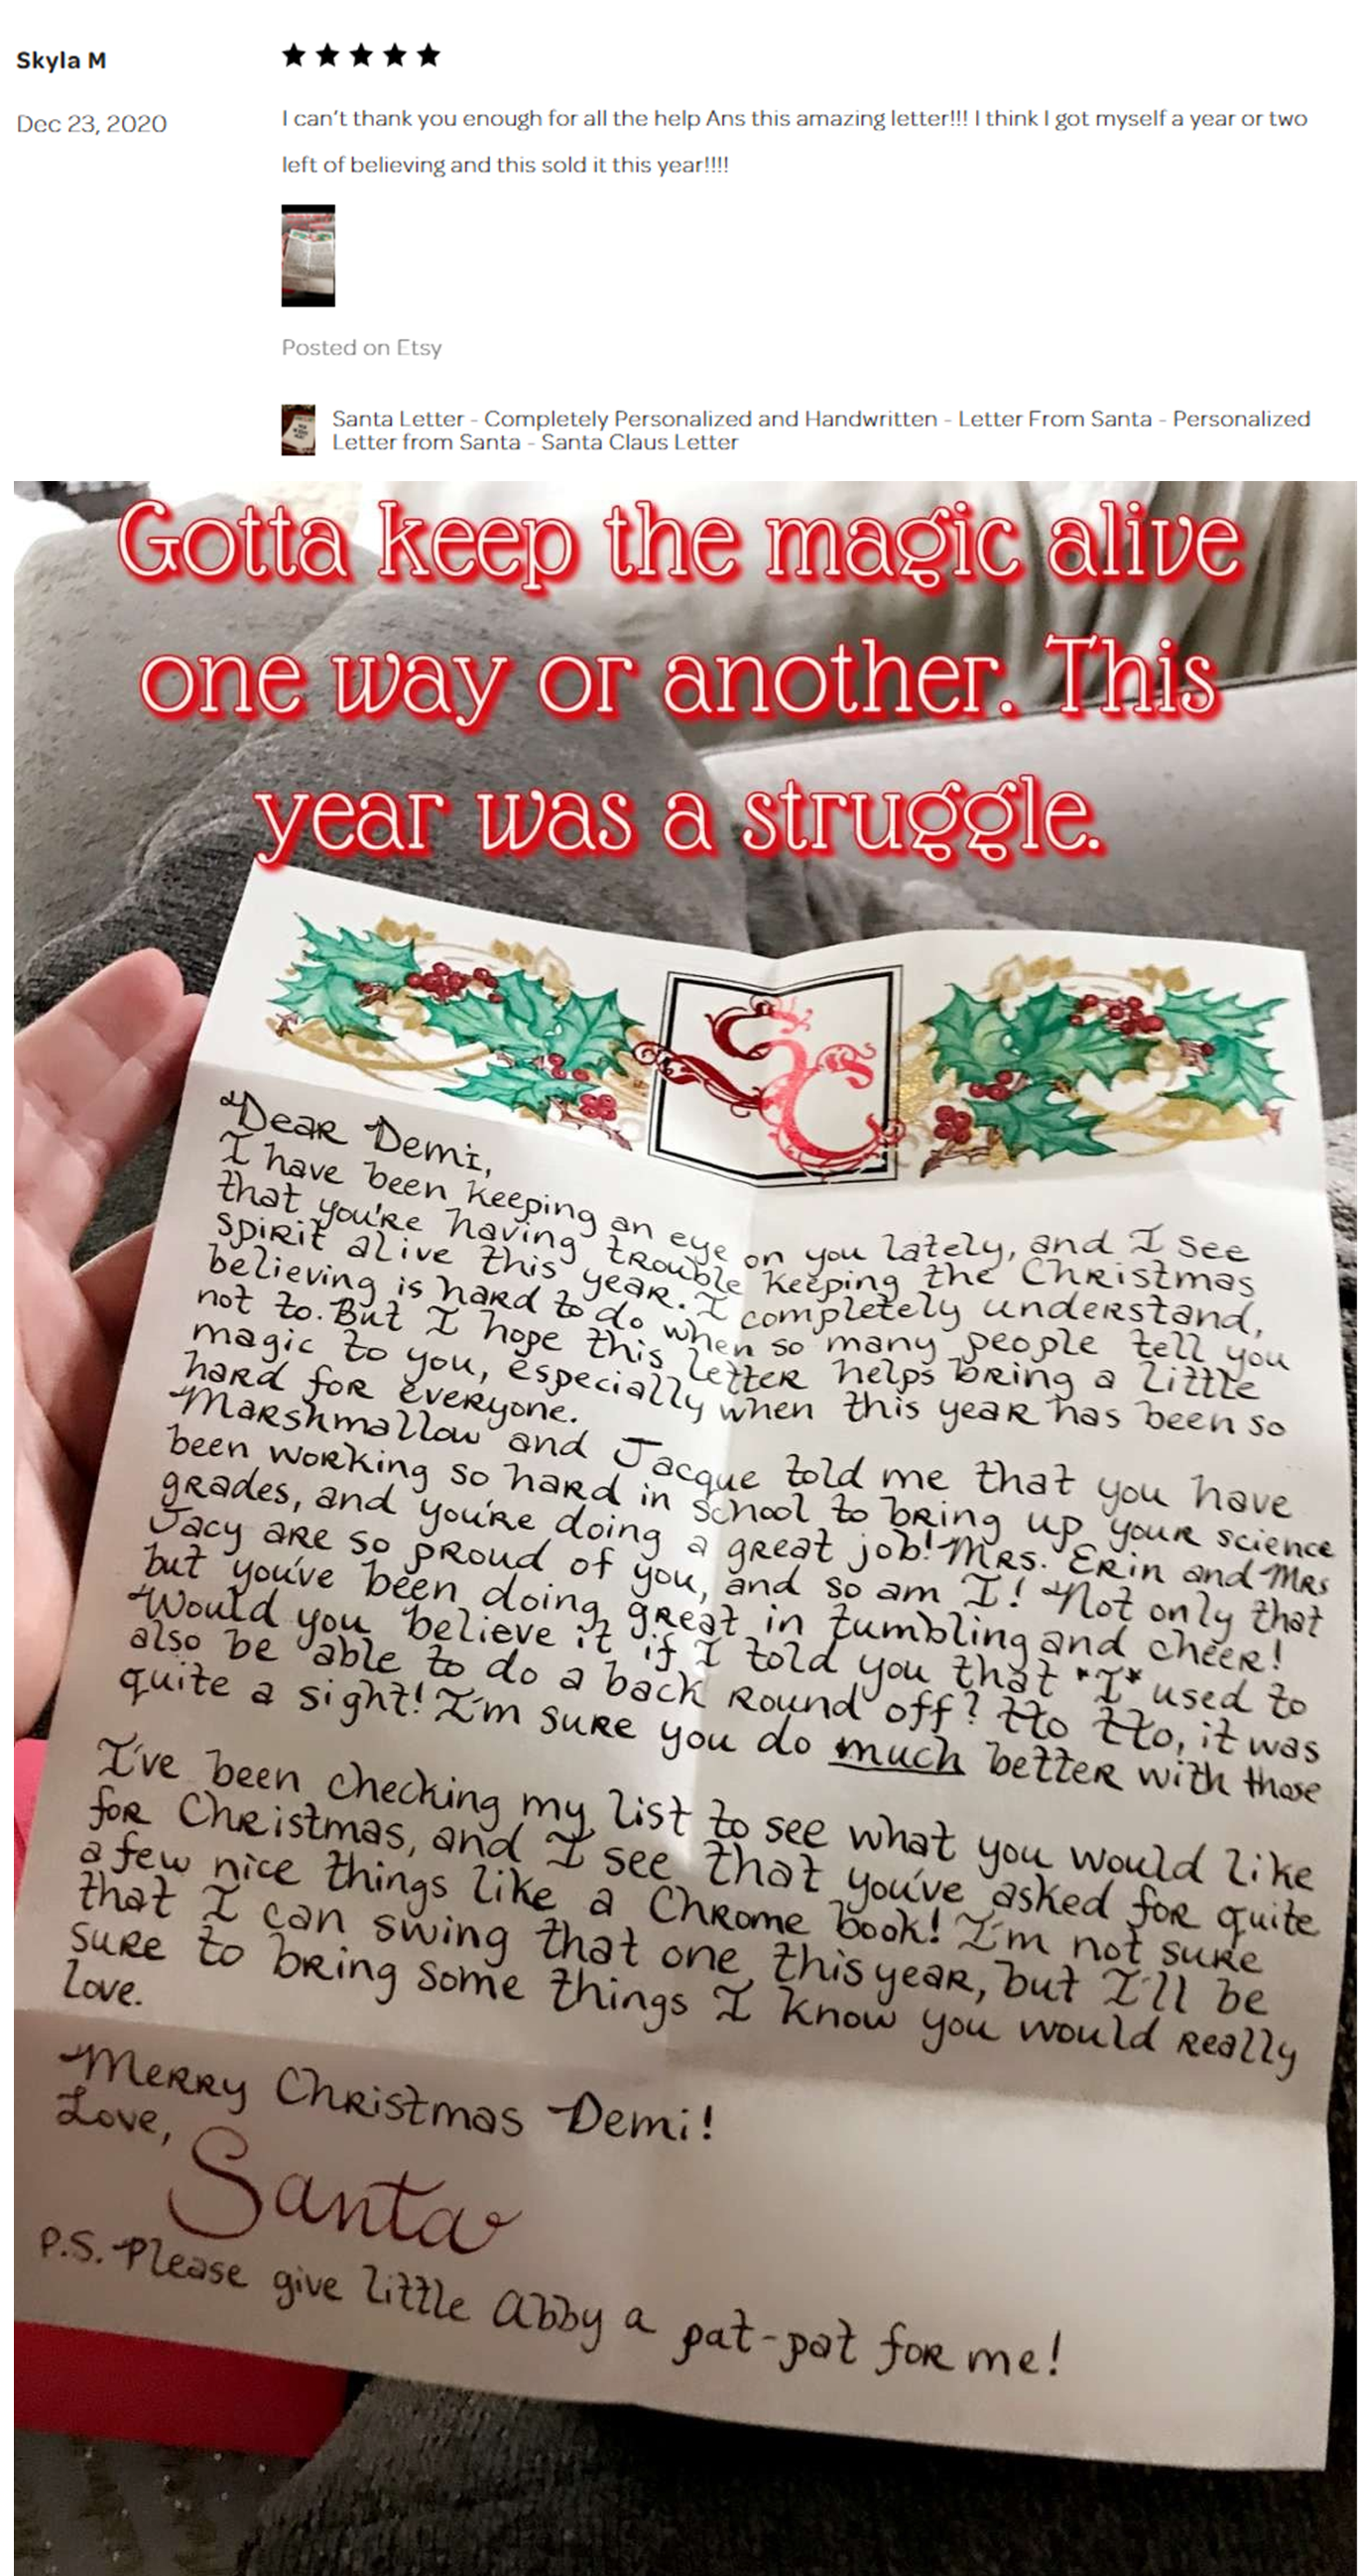 Skyla M
Dec 23, 2020
I can't thank you enough for all the help Ans this amazing letter!!! I think I got myself a year or two
left of believing and this sold it this year!!!!
Posted on Etsy
Santa Letter - Completely Personalized and Handwritten - Letter From Santa - Personalized
Letter from Santa - Santa Claus Letter
Gotta keep the magic alive
one way or another. This
year was a struggle.
SC
Dear Demi,
I have been keeping an eye on you lately, and I see
that you're having trouble keeping the Christmas
spirit alive this year. I completely understand,
believing is hard to do when so many people tell you
not to. But I hope this letter helps bring a little
magic to you, especially when this year has been so
hard for everyone.
Marshmallow and Jacque told me that you have
been working so hard in school to bring up your science
grades, and you're doing a great job! Mrs. Erin and Mrs
Jacy are so proud of you, and so am I! Not only that
but you've been doing great in tumbling and cheer!
Would you believe it if I told you that *I* used to
also be able to do a back round off? Ho Ho, it was
quite a sight! I'm sure you do much better with those
I've been checking my list to see what you would like
for Christmas, and I see that you've asked for quite
a few nice things like a Chrome book! I'm not sure
that I can swing that one this year, but I'll be
sure to bring some things I know you would really
love.
Merry Christmas Demi!
Love,
Santa
P.S. Please give little Abby a pat-pat for me!